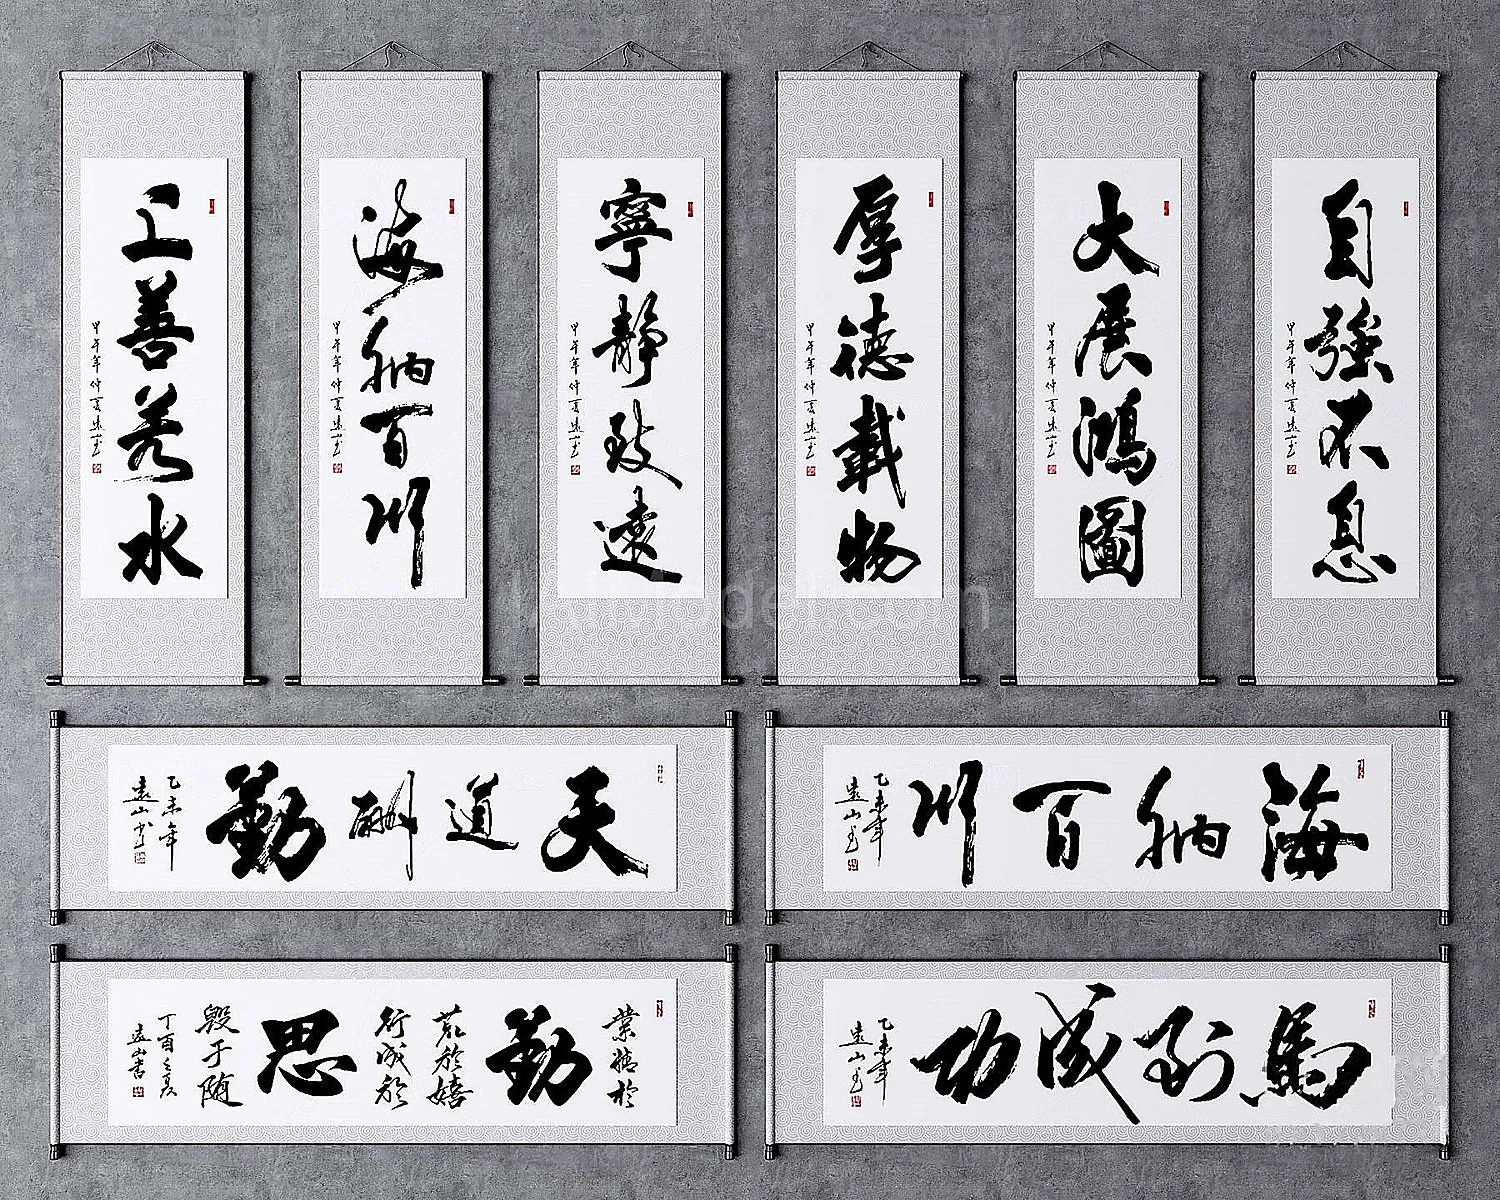 上善若水
甲午年仲夏遠山書
海納百川
甲午年仲夏遠山書
寧靜致遠
甲午年仲夏遠山書
厚德載物
甲午年仲夏遠山書
大展鴻圖
甲午年仲夏遠山書
自強不息
甲午年仲夏遠山書
天道酬勤
乙未年
遠山書
海納百川
乙未年
遠山書
業精於
勤
荒於嬉
行成於
思
毀于随
遠山書
馬到成功
乙未年
遠山書